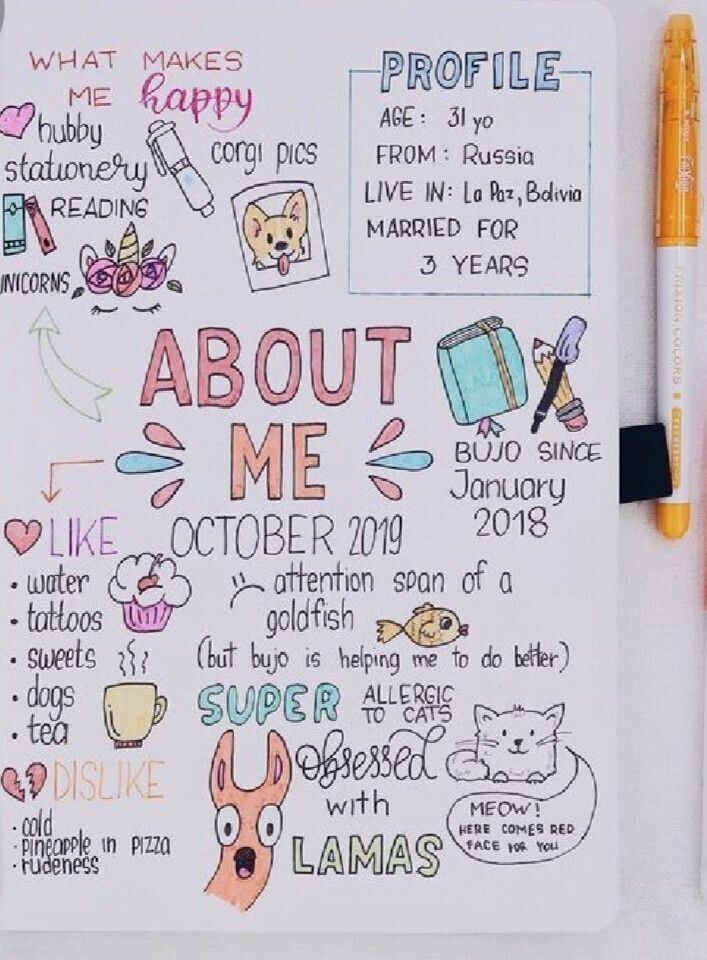 WHAT MAKES
ME happy
hubby
stationery
READING
UNICORNS
corgi pics
PROFILE
AGE: 31 yo
FROM: Russia
LIVE IN: La Paz, Bolivia
MARRIED FOR
3 YEARS
ABOUT
ME
BUJO SINCE
January
2018
OCTOBER 2019
LIKE
• water
• tattoos
• sweets
• dogs
• tea
DISLIKE
• cold
• pineapple in pizza
• rudeness
attention span of a
goldfish
(but bujo is helping me to do better)
SUPER ALLERGIC
TO CATS
obsessed
with
LAMAS
MEOW!
HERE COMES RED
FACE FOR YOU
FRIXION COLORS